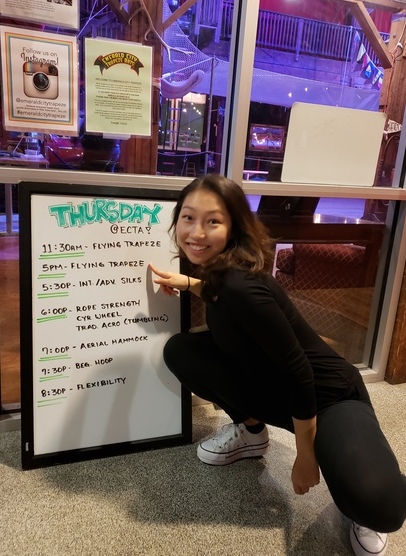 Follow us on
Instagram
@emeraldcitytrapeze
@emeraldcitytrapeze
EMERALD CITY
TRAPEZE ARTS
THURSDAY
@ECTA!
11:30AM - FLYING TRAPEZE
5PM - FLYING TRAPEZE
5:30P - INT./ADV. SILKS
6:00P - ROPE STRENGTH
CYR WHEEL
TRAD. ACRO (TUMBLING)
7:00P - AERIAL HAMMOCK
7:30P - BEG. HOOP
8:30P - FLEXIBILITY